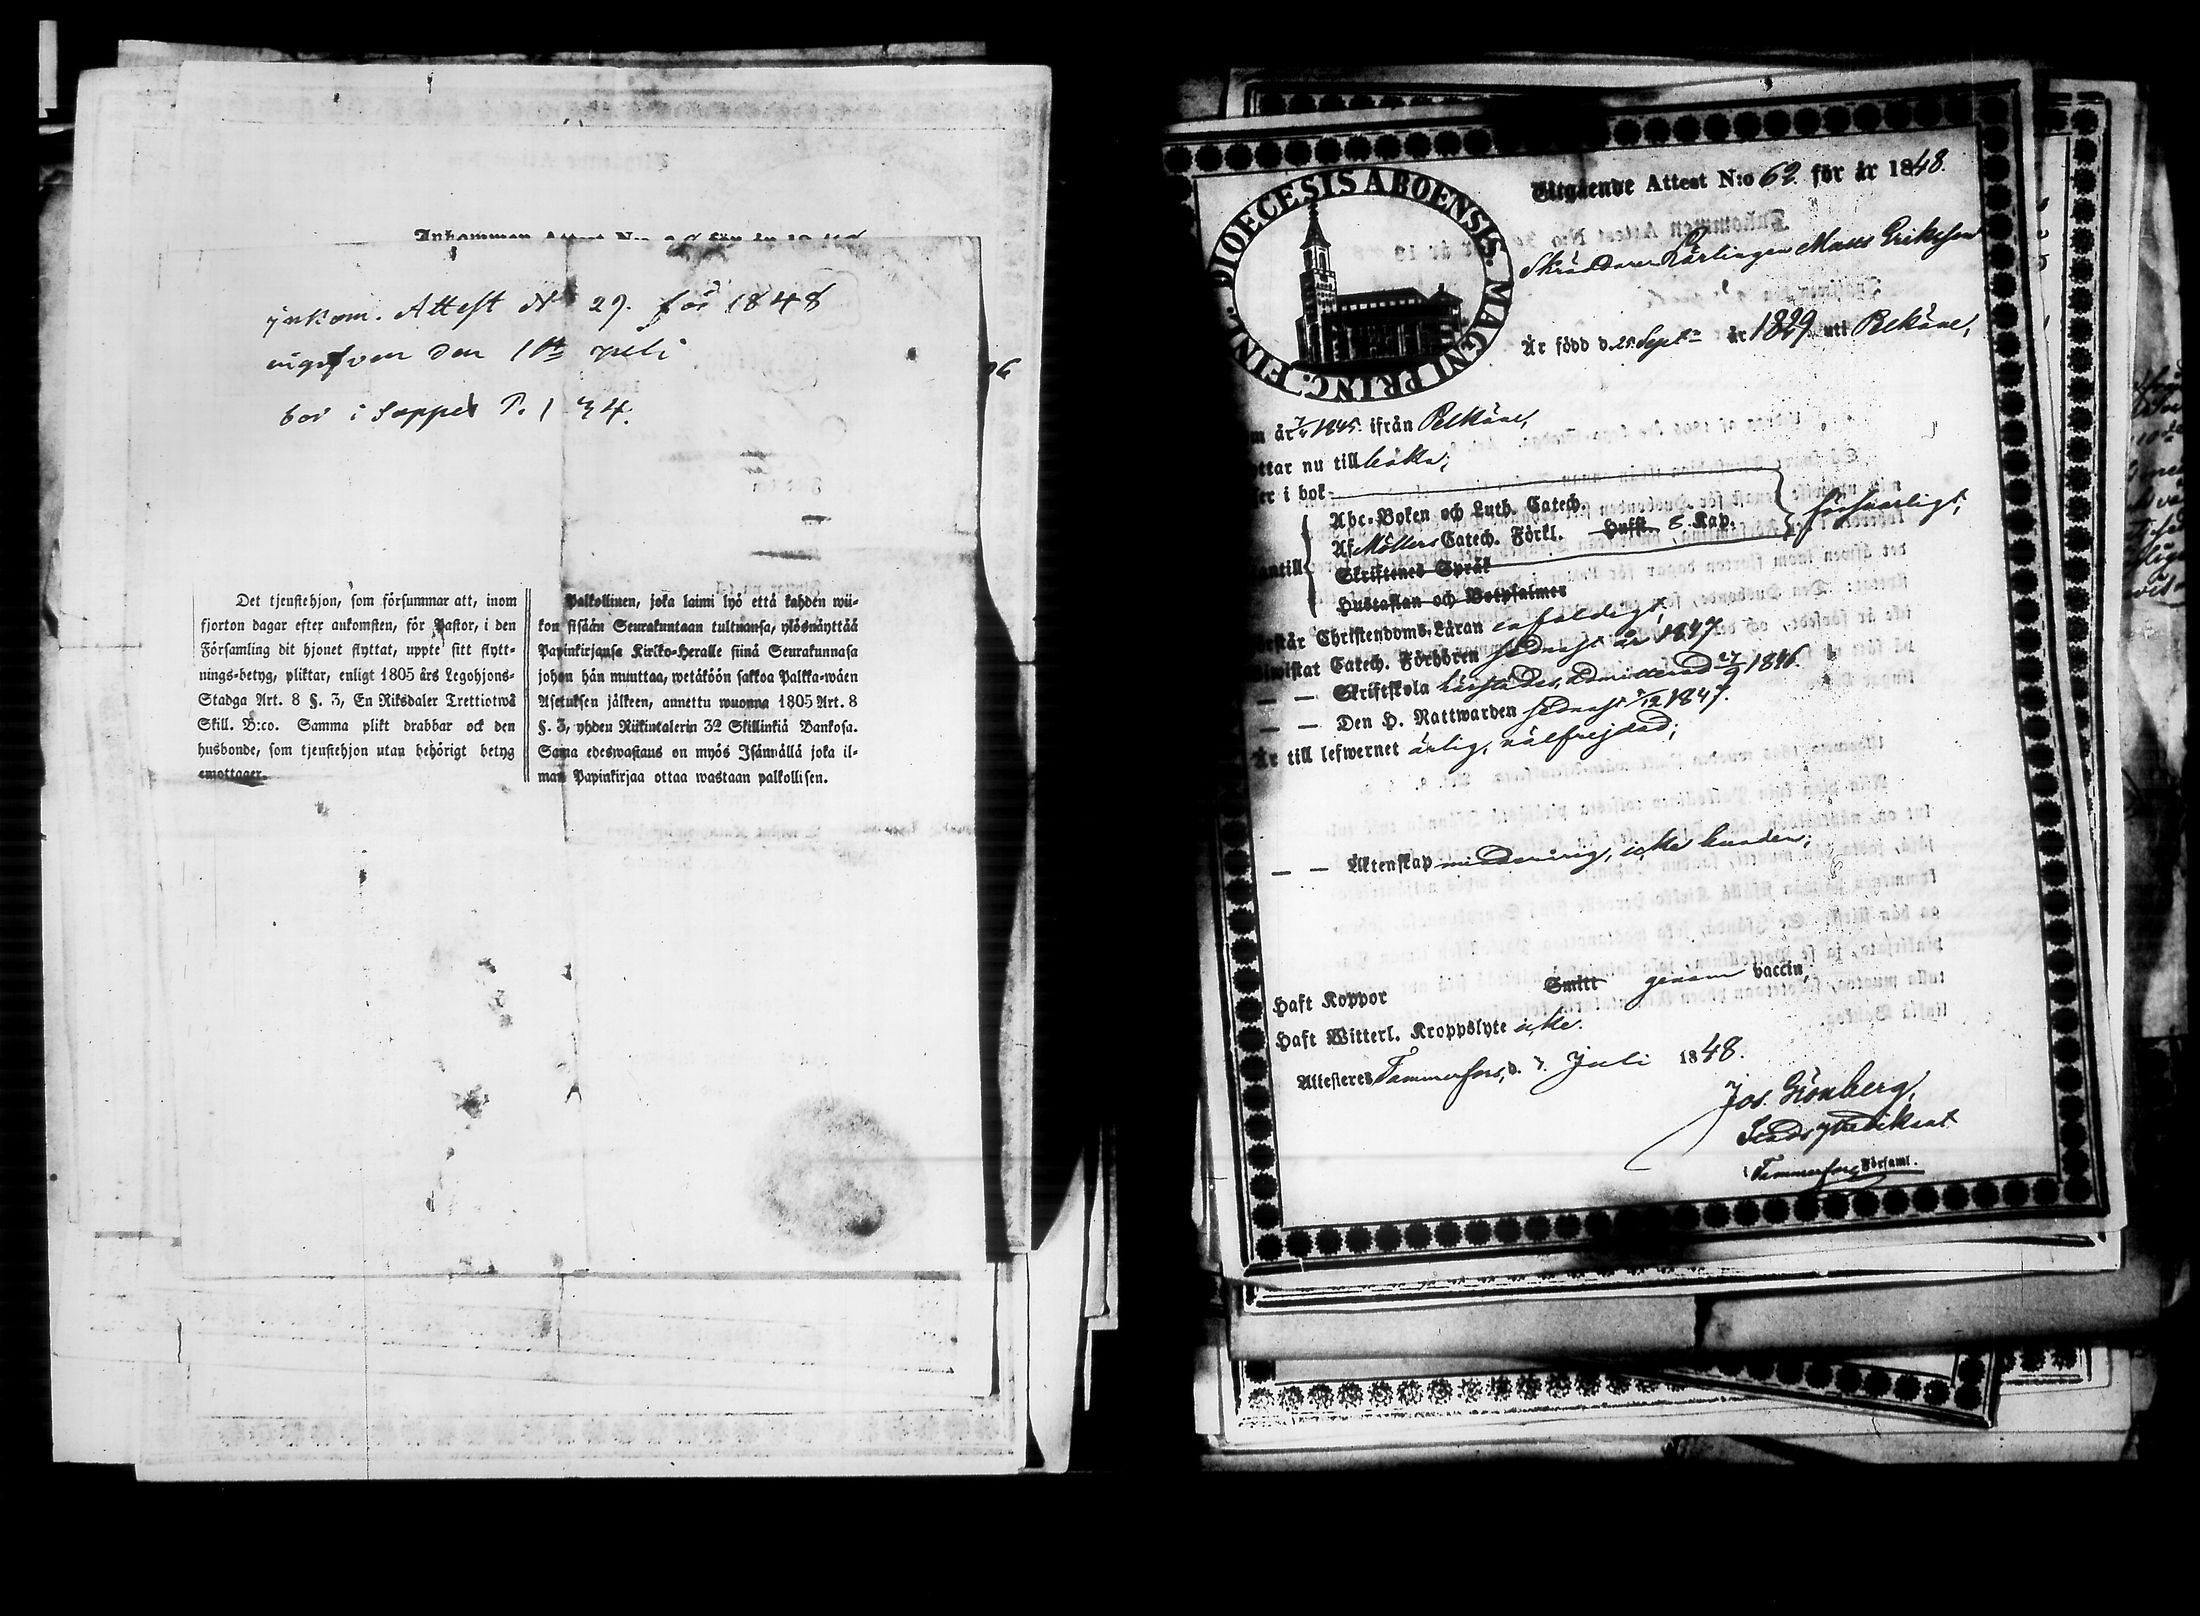 inkom. Attest No 29. för 1848
ingifven den 1sta juli
bor i Soppes P. 134.
Det tjenstehjon, som försummar att, inom
fjorton dagar efter ankomsten, för Pastor, i den
Församling dit hjonet flyttat, uppte sitt flytt-
nings-betyg, pliktar, enligt 1805 års Legohjons-
Stadga Art. 8 §. 3, En Riksdaler Trettiotwå
Skill. B:co. Samma plikt drabbar ock den
husbonde, som tjenstehjon utan behörigt betyg
emottager.
Palkollinen, joka laimi lyö että kahden wii-
kon sisään Seurakuntaan tultuansa, ylösnäyttää
Papinkirjansa Kirkko-Heralle siinä Seurakunnasa
johon hän muuttaa, wetäköön sakkoa Palkka-wäen
Asetuksen jälkeen, annettu wuonna 1805 Art. 8
§. 3, yhden Riikintalerin 32 Skillinkiä Bankosa.
Sama edeswastaus on myös Isännällä joka il-
man Papinkirjaa ottaa wastaan palkollisen.
DIOECESIS ABOENSIS. MAGNI PRINC. FINL.
Utgående Attest N:o 62. för år 1848.
Skräddare Lärlingen Mats Eriksson
Är född d. 25 Septbr år 1829 uti Pelkäne,
m år 1845. ifrån Pelkäne,
ttar nu till
er i bok
Abc-Boken och Luth. Catech.
Af Möllers Catech. Förkl. Hufst. 8 Kap. försvarligt,
antill
Skriftenes Språk
Hustaflan och Botpsalmer
rstår Christendoms-Läran enfaldigt,
Biwistat Catech. Förhören sednast år 1847
— — Skriftskola härstädes, admitterad 27/9 1846.
— — Den H. Nattwarden sednast 5/12 1847.
Är till lefwernet ärlig, välfrejdad;
— — Äktenskap minderårig, icke bunden;
Haft Koppor Smitt genom vaccin,
Haft Witterl. Kroppslyte icke.
Attesteres Tammerfors, d. 7. Juli 1848.
Jos. Grönberg,
Stadspredikant
i Tammerfors Församl.